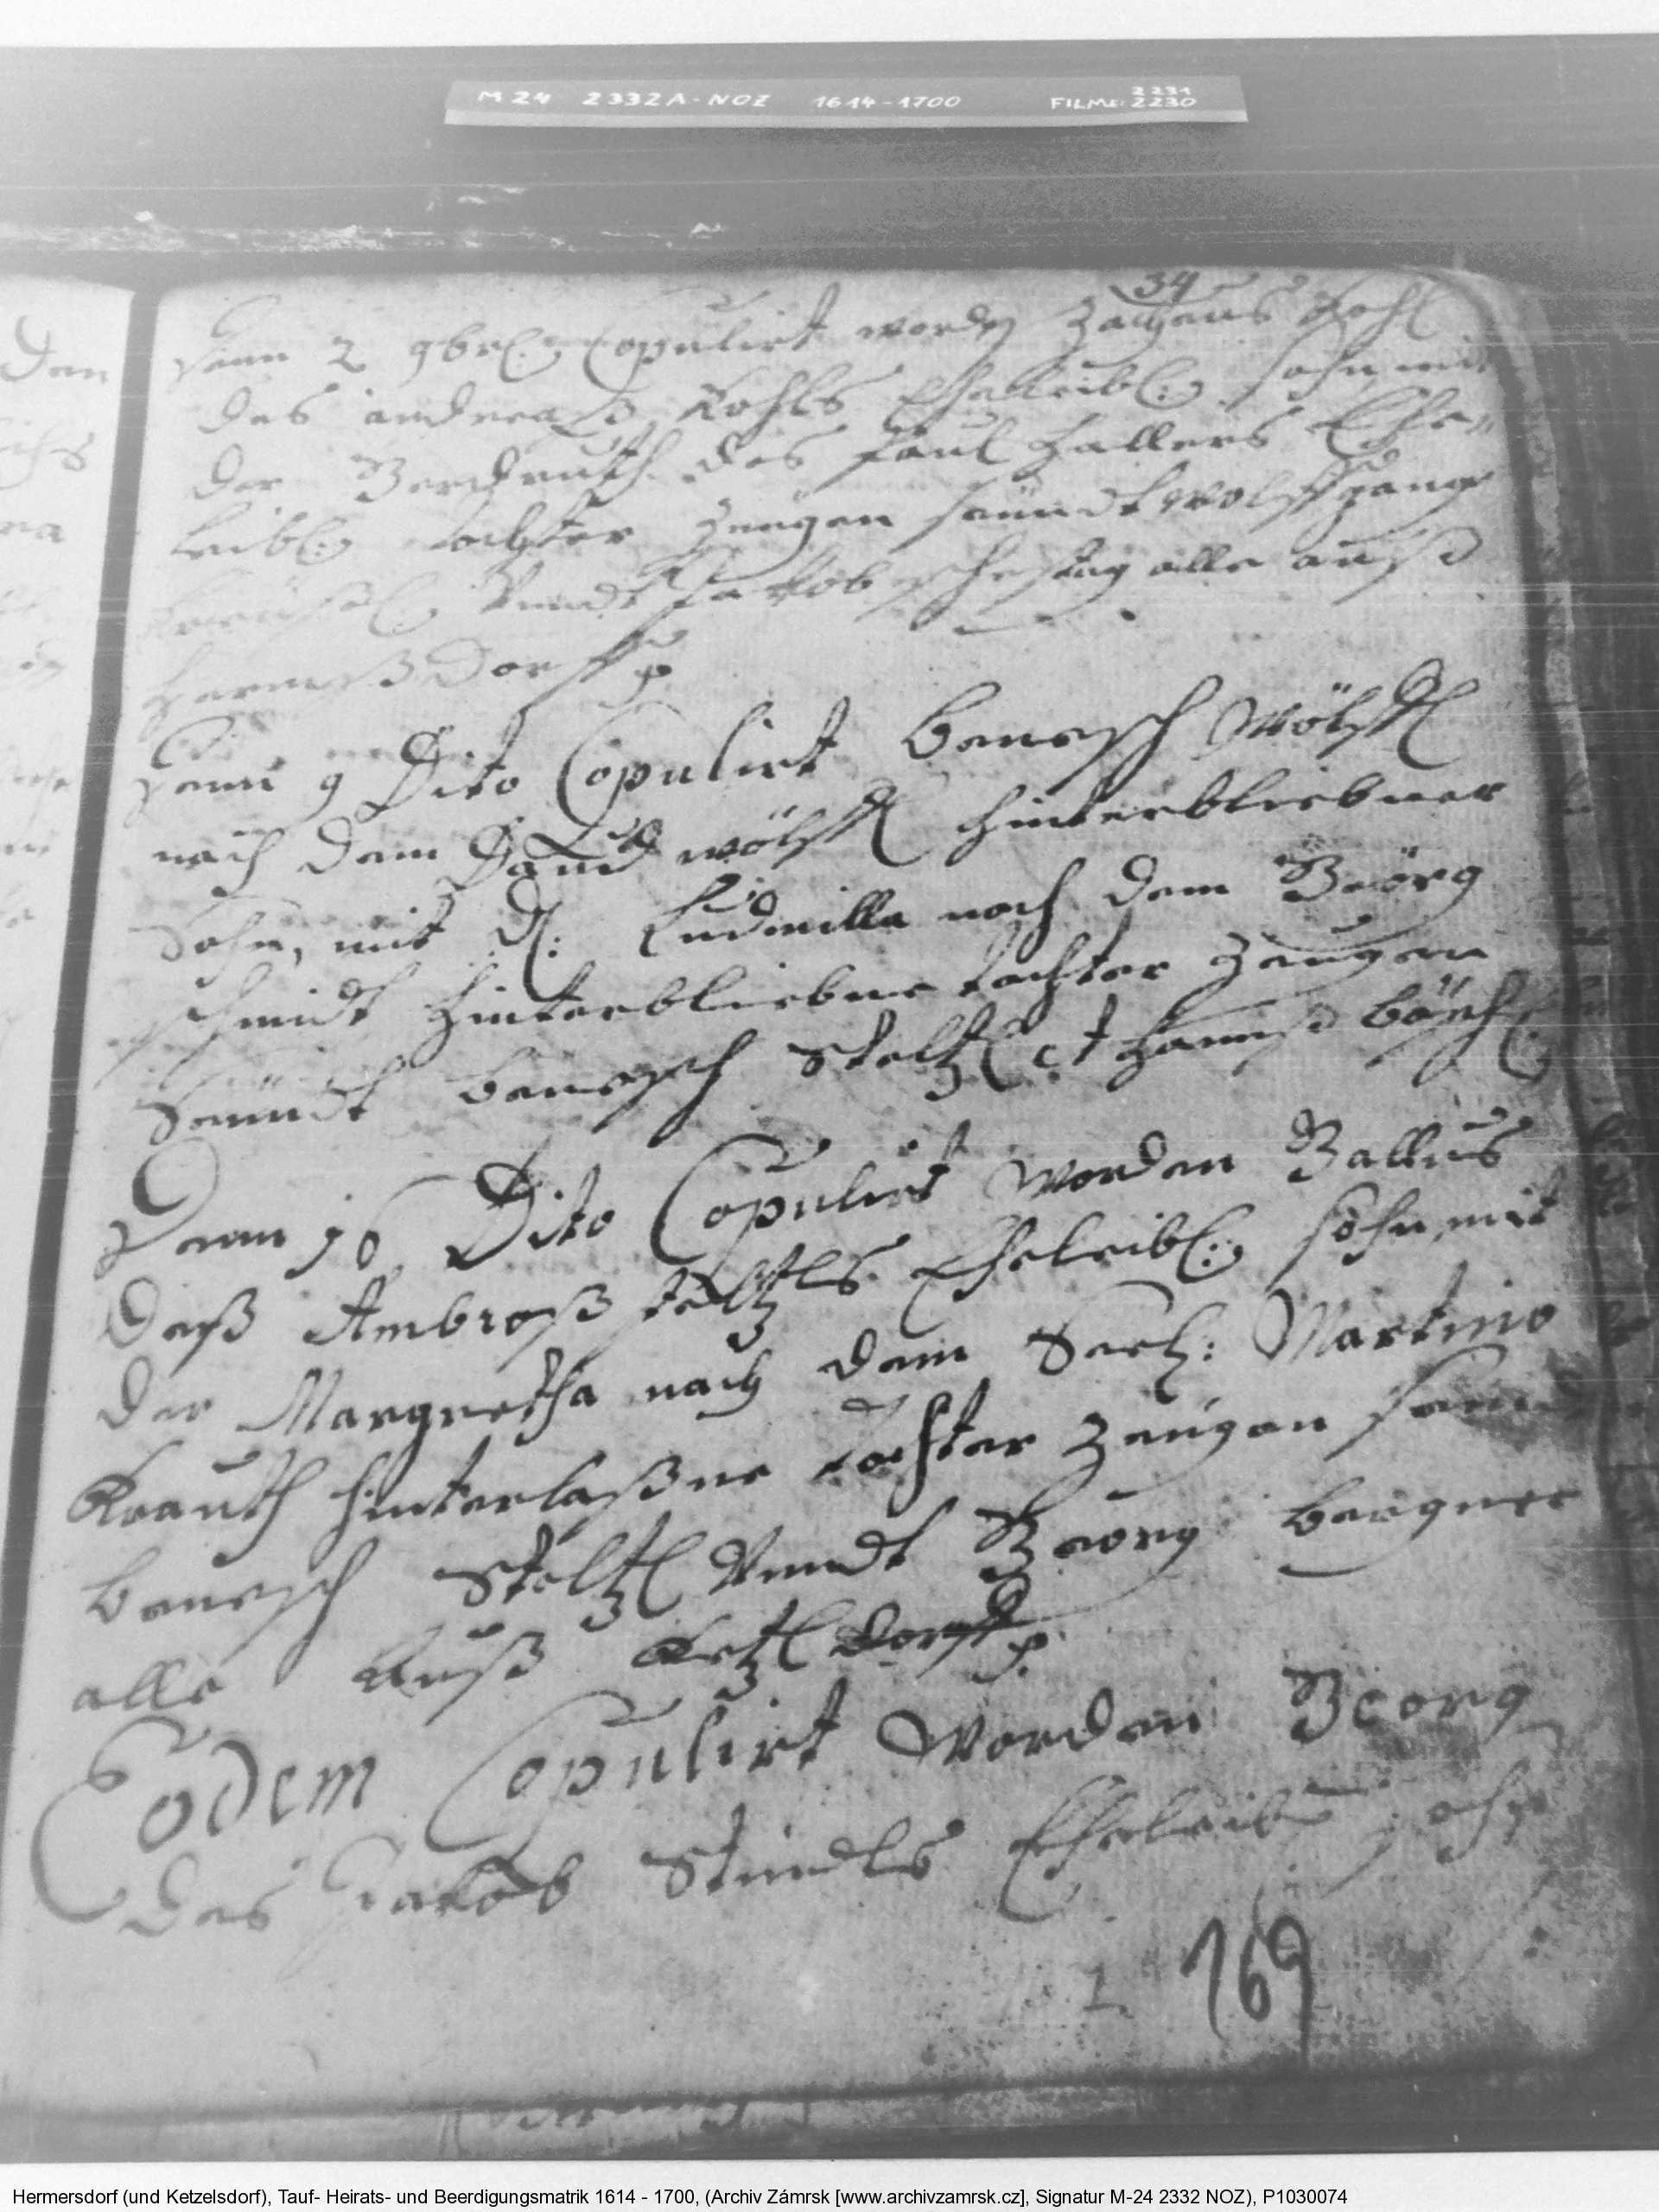 M 24 2332A-NOZ 1614-1700 FILME: 2231 2230
34
Denn 2 9br: Copulirt worden Zachaus Kohl
des andreaß Kohls Eheleibl: sohn mit
der Gerdruth des Paul Hallers Ehe„
leibl: tochter Zeugen seündt Wolffgang
Vundt Jakob alle auß
Hermßdorff p
Denn 9 Dito Copulirt Benesch Wölfl
nach dem David wölfl hinterbliebner
Sohn, mit d: Ludmilla nach dem Geörg
schmidt hinterbliebne tochter Zeugen
Seündt Benesch Steltzl et Hannß
Denn 16 Dito Copulirt worden Gallus
deß Ambroß teltzls Eheleibl: sohn, mit
der Margretha nach dem Seel: Martino
Krauth hinterlaßne tochter Zeugen seündt
Benesch Steltzl Vundt Georg Bergner
alle Auß Ketzldorff p.
Eodem Copulirt worden Georg
des Jakob Stindls Eheleibl: sohn
169
Hermersdorf (und Ketzelsdorf), Tauf- Heirats- und Beerdigungsmatrik 1614 - 1700, (Archiv Zámrsk [www.archivzamrsk.cz], Signatur M-24 2332 NOZ), P1030074